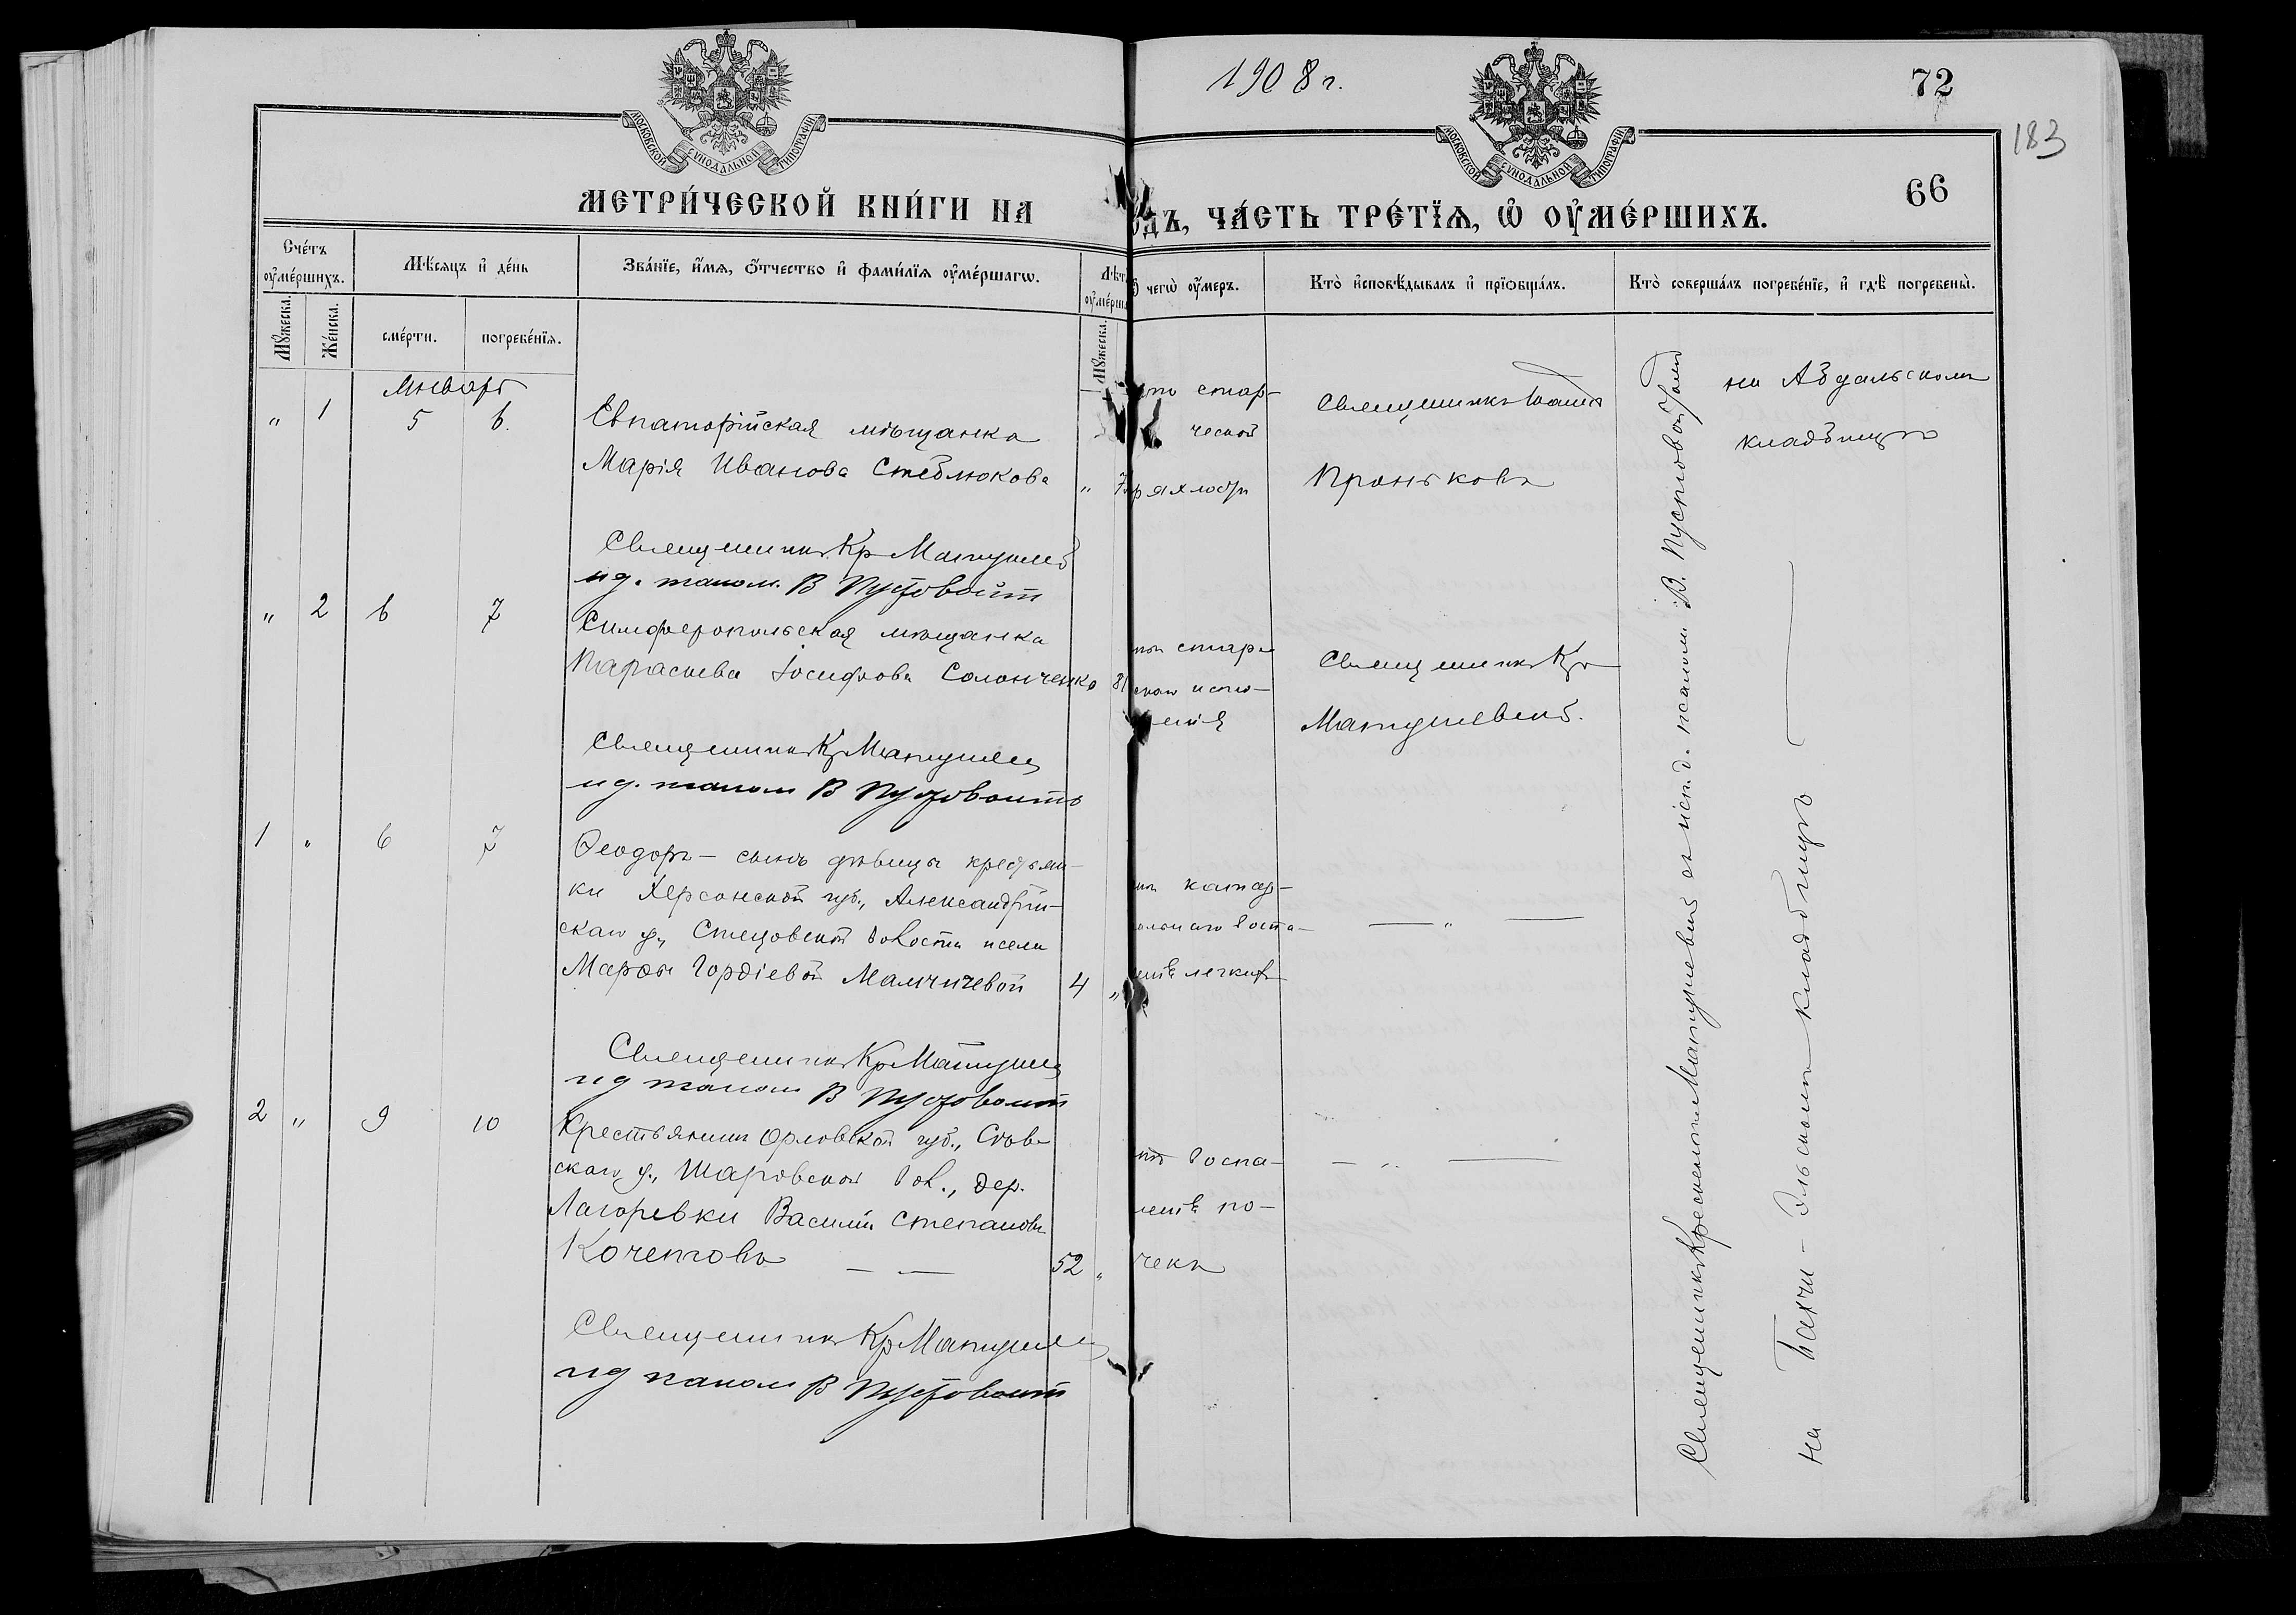 1908 г.
72
183
66
МОСКОВСКОЙ СѴНОДАЛЬНОЙ ТИПОГРАФІИ
МОСКОВСКОЙ СѴНОДАЛЬНОЙ ТИПОГРАФІИ
МЕТРИ́ЧЕСКОЙ КНИ́ГИ НА
ОДЪ, ЧА́СТЬ ТРЕ́ТЇѦ, Ѿ ОУ҆МЕ́РШИХЪ.
Сче́тъ оу҆ме́ршихъ.
Мꙋжеска.
Же́нска.
Мѣ́сѧцъ и҆ де́нь
сме́рти.
погребе́нїѧ.
Зва́нїе, и҆́мѧ, ѻ҆́тчество и҆ фами́лїѧ оу҆ме́ршагѡ.
Лѣт
оу҆ме́рш
Мꙋжеска.
чегѡ̀ оу҆́меръ.
Кто̀ и҆сповѣ́дывалъ и҆ прїѡбща́лъ.
Кто̀ соверша́лъ погребе́нїе, и҆ гдѣ̀ погребены̀.
Январь
" 1 5 6.
Евпаторійская мѣщанка
Марія Иванова Стеблюкова "
стар-
ческой
ряхлости
Священникъ Іоаннъ
Проньковъ
на Абдальскомъ
кладбищѣ
Священникъ Кр Матушев
и д. псалом. В Пустовойт
" 2 6 7
Симферопольская мѣщанка
Параскева Іосифова Солонченко 81
старче
скаго исто-
щенія
Священникъ Кр
Матушевскій.
Священникъ Кр Матушев
и д. псалом В Пустовоитъ
1 " 6 7
Ѳеодоръ – сынъ дѣвицы крестьян-
ки Херсонской губ., Александрій-
скаго у., Стецовской волости и села
Марѳы Гордіевой Мамчичевой 4 "
катар-
ральнаго воспа-
ленія легкихъ
— " —
Священникъ Кр Матушев
и д псалом В Пустовоит
2 " 9 10
Крестьянинъ Орловской губ., Сѣв-
скаго у., Шаровской вол., дер.
Лагоревки Василій Степановъ
Кочетовъ — — 52 "
воспа-
ленія по-
чекъ
— " —
Священникъ Кр Матушев
и д псалом В Пустовоит
Священникъ Крескентъ Матушевскій съ исп. д. псаломщ. В. Пустовойтомъ
на Бахчи-Эльскомъ кладбищѣ —